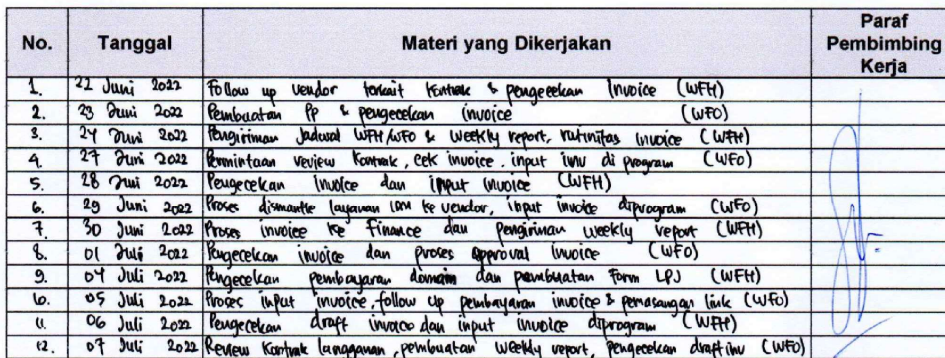 No. Tanggal Materi yang Dikerjakan Paraf Pembimbing Kerja
1. 22 Juni 2022 Follow up vendor terkait kontrak & pengecekan Invoice (WFH)
2. 23 Juni 2022 Pembuatan PP & pengecekan invoice (WFO)
3. 24 Juni 2022 Pengiriman Jadwal WFH/WFO & weekly report, rutinitas invoice (WFH)
4. 27 Juni 2022 Permintaan review kontrak, cek invoice, input inv di program (WFO)
5. 28 Juni 2022 Pengecekan invoice dan input invoice (WFH)
6. 29 Juni 2022 Proses dismantle layanan ke vendor, input invoice diprogram (WFO)
7. 30 Juni 2022 Proses invoice ke Finance dan pengiriman weekly report (WFH)
8. 01 Juli 2022 Pengecekan invoice dan proses approval invoice (WFO)
9. 04 Juli 2022 Pengecekan pembayaran domain dan pembuatan Form LPJ (WFH)
10. 05 Juli 2022 Proses input invoice, follow up pembayaran invoice & pemasangan link (WFO)
11. 06 Juli 2022 Pengecekan draft invoice dan input invoice diprogram (WFH)
12. 07 Juli 2022 Review kontrak langganan, pembuatan weekly report, pengecekan draft inv (WFO)